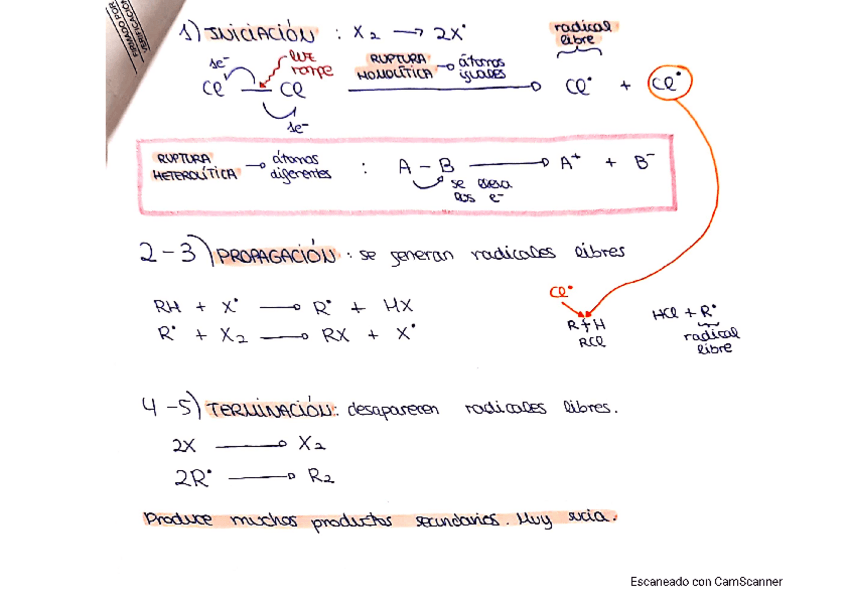 FIRMADO POR
VERIFICACIÓN
1) INICIACIÓN : X2 → 2X•
radical libre
se-
luz rompe
Cl — Cl
se-
RUPTURA HOMOLÍTICA → átomos iguales
Cl• + Cl•
RUPTURA HETEROLÍTICA → átomos diferentes : A - B → A+ + B-
se lleva los e-
2-3) PROPAGACIÓN : se generan radicales libres
RH + X• → R• + HX
R• + X2 → RX + X•
Cl•
R + H
RCl
HCl + R•
radical libre
4-5) TERMINACIÓN: desaparecen radicales libres.
2X → X2
2R• → R2
Produce muchos productos secundarios. Muy sucia.
Escaneado con CamScanner